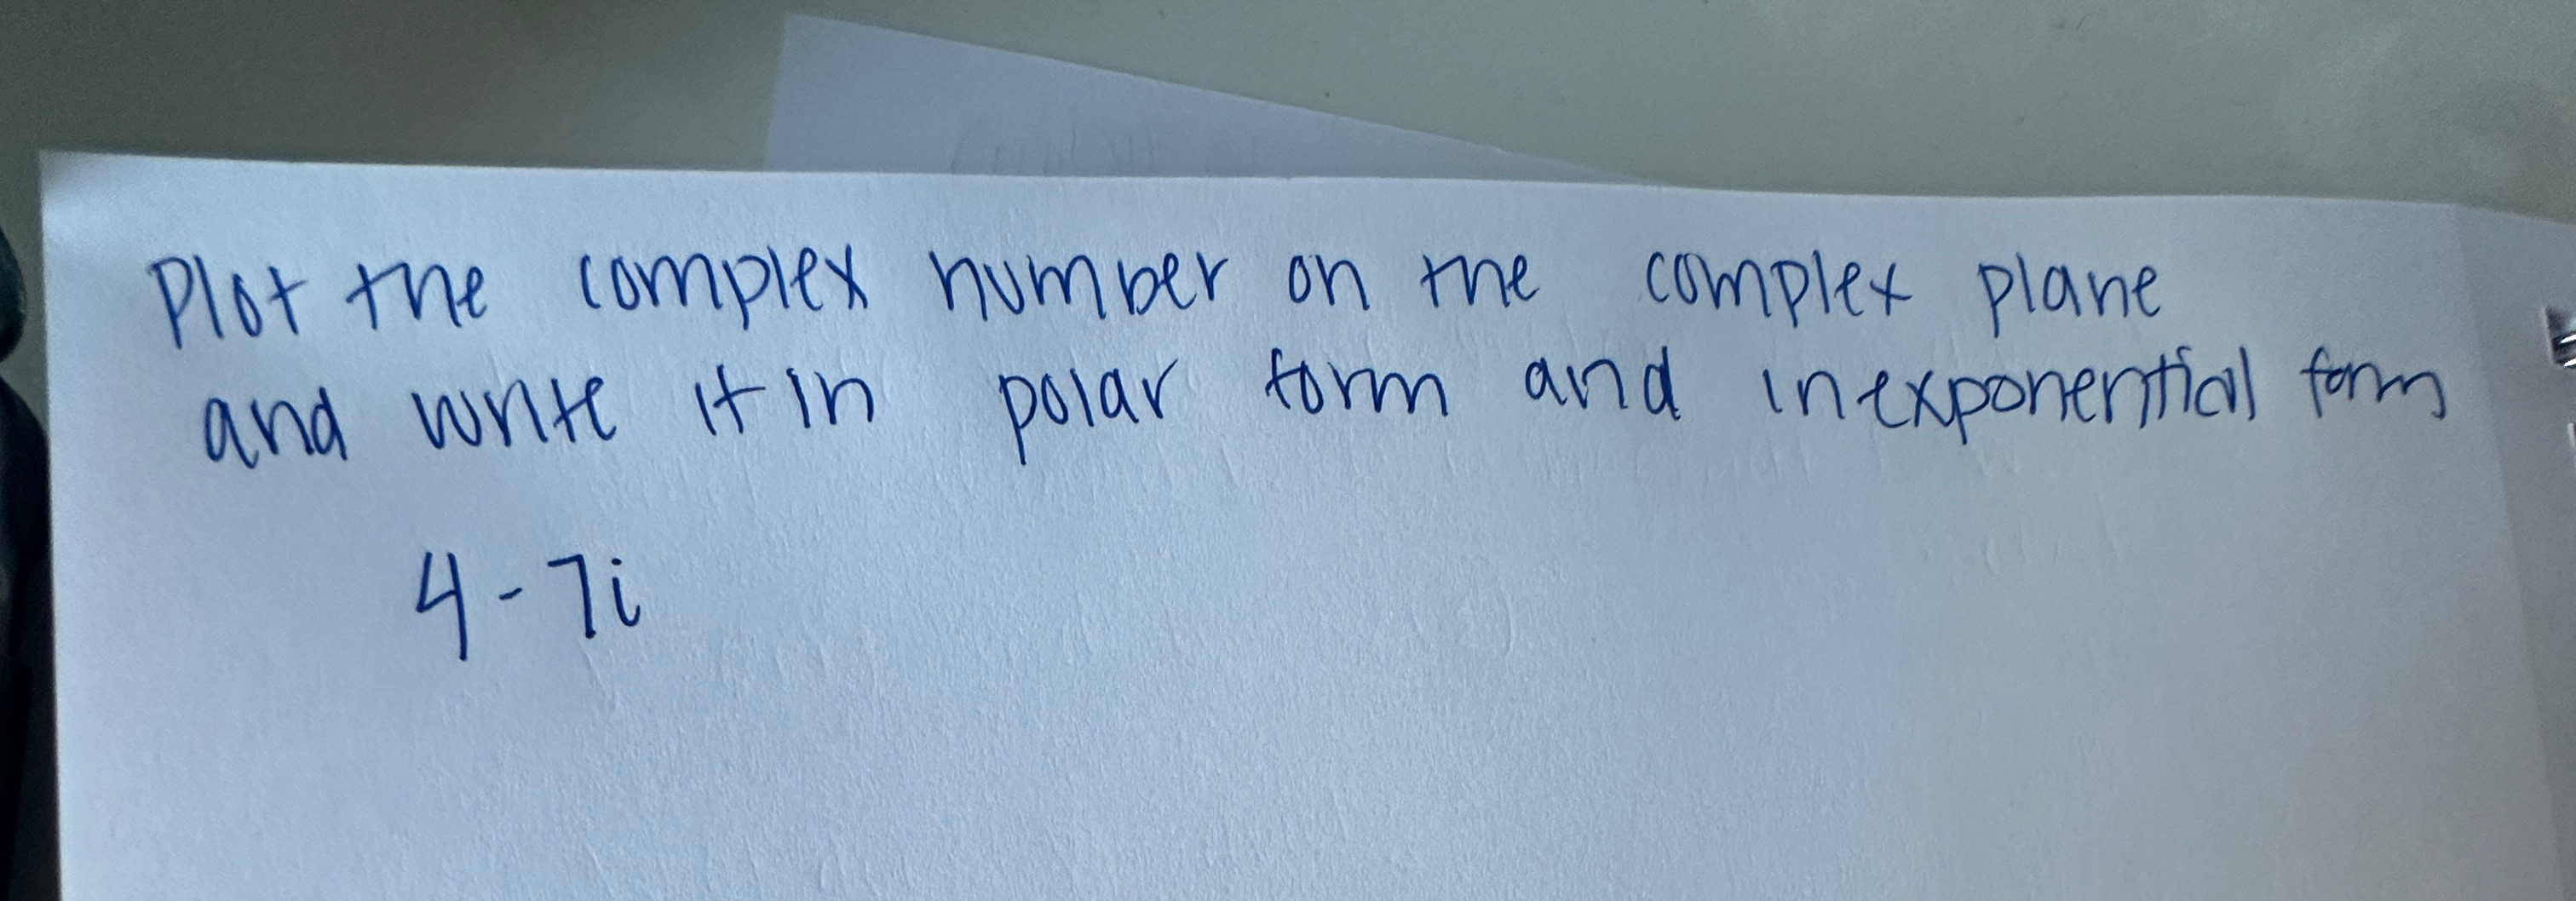 Plot the complex number on the complex plane
and write it in polar form and in exponential form
4-7i